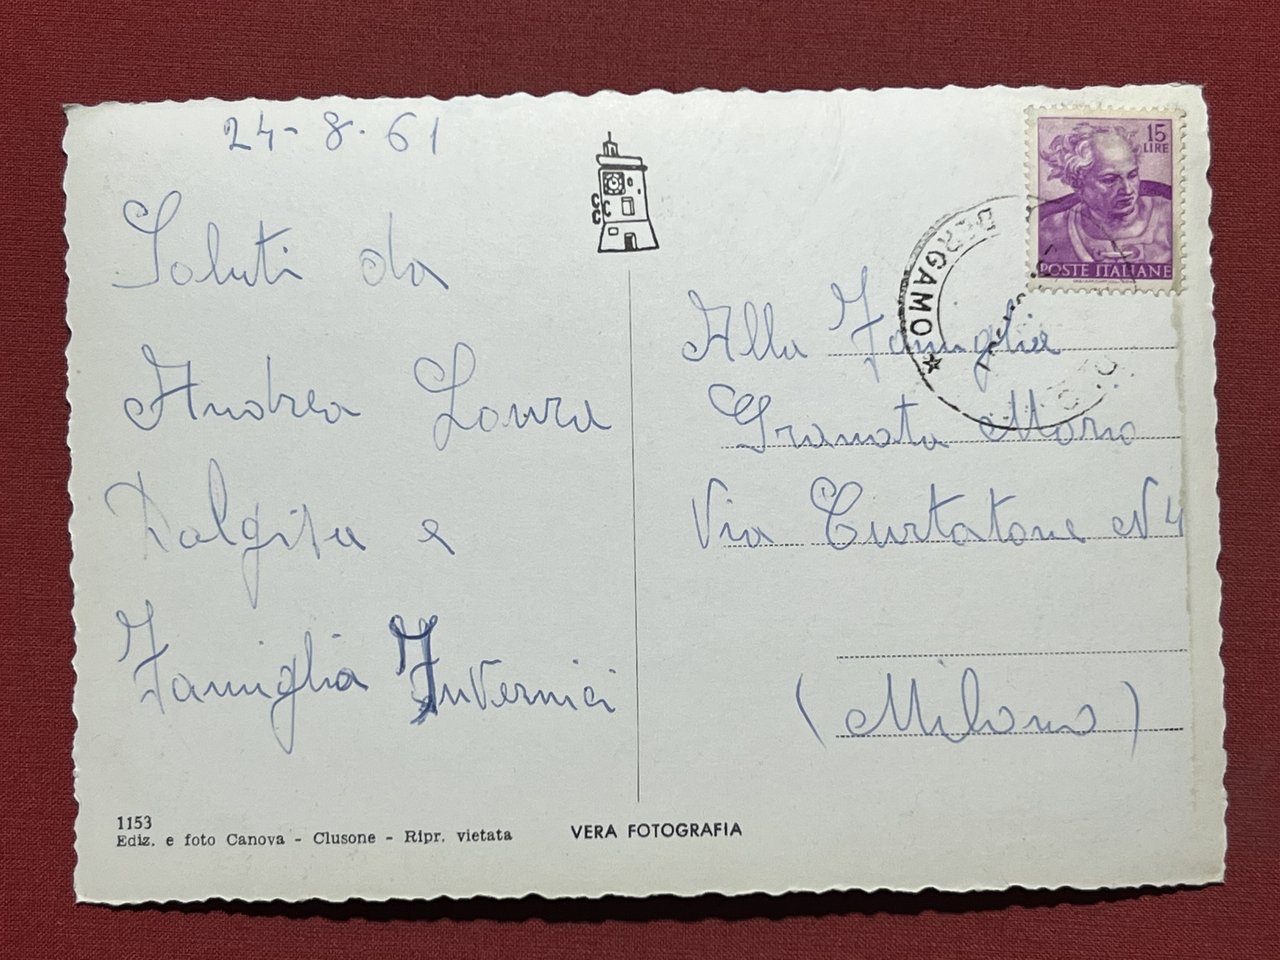 24-8-61
Saluti da
Andrea Laura
Dalgisa e
Famiglia Invernici
1153
Ediz. e foto Canova - Clusone - Ripr. vietata
VERA FOTOGRAFIA
CCCC
15
LIRE
POSTE ITALIANE
BERGAMO
Alla Famiglia
Granata Mario
Via Curtatone N 4
(Milano)